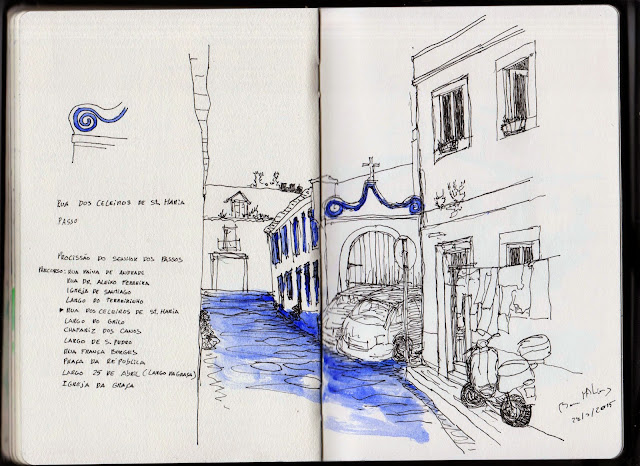 RUA DOS CELEIROS DE STA MARIA
PASSO
PROCISSÃO DO SENHOR DOS PASSOS
PERCURSO: RUA PAIVA DE ANDRADE
RUA DR. ALEIXO FERREIRA
IGREJA DE SANTIAGO
LARGO DO TERREIRINHO
RUA DOS CELEIROS DE STA MARIA
LARGO DO GRILO
CHAFARIZ DOS CANOS
LARGO DE S. PEDRO
RUA FRANÇA BORGES
PRAÇA DA REPÚBLICA
LARGO 25 DE ABRIL (LARGO DA GRAÇA)
IGREJA DA GRAÇA